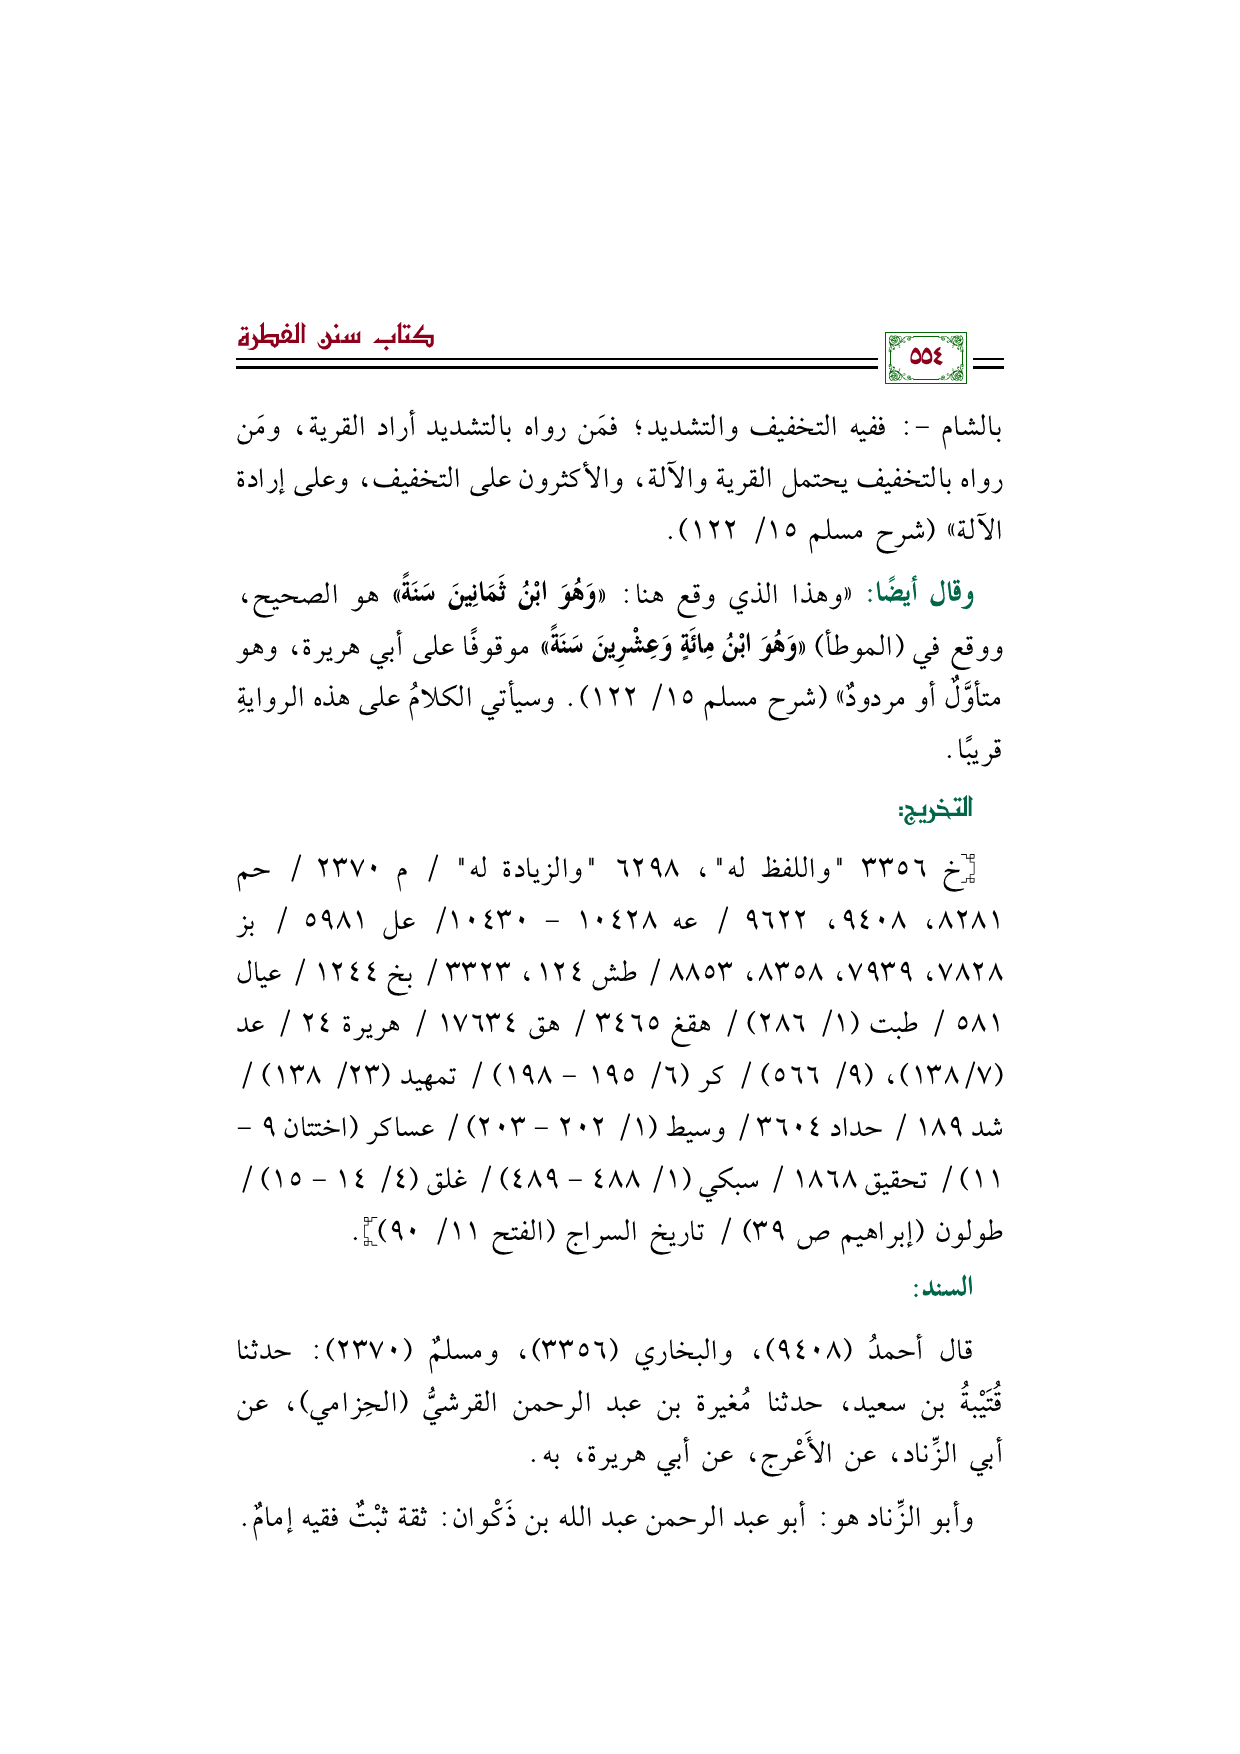 كتاب سنن الفطرة
٥٥٤
بالشام -: ففيه التخفيف والتشديد؛ فمَن رواه بالتشديد أراد القرية، ومَن
رواه بالتخفيف يحتمل القرية والآلة، والأكثرون على التخفيف، وعلى إرادة
الآلة» (شرح مسلم ١٥/ ١٢٢).
وقال أيضًا: «وهذا الذي وقع هنا: «وَهُوَ ابْنُ ثَمَانِينَ سَنَةً» هو الصحيح،
ووقع في (الموطأ) «وَهُوَ ابْنُ مِائَةٍ وَعِشْرِينَ سَنَةً» موقوفًا على أبي هريرة، وهو
متأوَّلٌ أو مردودٌ» (شرح مسلم ١٥/ ١٢٢). وسيأتي الكلامُ على هذه الروايةِ
قريبًا.
التخريج:
[خ ٣٣٥٦ "واللفظ له"، ٦٢٩٨ "والزيادة له" / م ٢٣٧٠ / حم
٨٢٨١، ٩٤٠٨، ٩٦٢٢ / عه ١٠٤٢٨ - ١٠٤٣٠/ عل ٥٩٨١ / بز
٧٨٢٨، ٧٩٣٩، ٨٣٥٨، ٨٨٥٣ / طش ١٢٤، ٣٣٢٣ / بخ ١٢٤٤ / عيال
٥٨١ / طبت (١/ ٢٨٦) / هقغ ٣٤٦٥ / هق ١٧٦٣٤ / هريرة ٢٤ / عد
(٧/ ١٣٨)، (٩/ ٥٦٦) / كر (٦/ ١٩٥ - ١٩٨) / تمهيد (٢٣/ ١٣٨) /
شد ١٨٩ / حداد ٣٦٠٤ / وسيط (١/ ٢٠٢ - ٢٠٣) / عساكر (اختتان ٩ -
١١) / تحقيق ١٨٦٨ / سبكي (١/ ٤٨٨ - ٤٨٩) / غلق (٤/ ١٤ - ١٥) /
طولون (إبراهيم ص ٣٩) / تاريخ السراج (الفتح ١١/ ٩٠)].
السند:
قال أحمدُ (٩٤٠٨)، والبخاري (٣٣٥٦)، ومسلمٌ (٢٣٧٠): حدثنا
قُتَيْبةُ بن سعيد، حدثنا مُغيرة بن عبد الرحمن القرشيُّ (الحِزامي)، عن
أبي الزِّناد، عن الأَعْرج، عن أبي هريرة، به.
وأبو الزِّناد هو: أبو عبد الرحمن عبد الله بن ذَكْوان: ثقة ثبْتٌ فقيه إمامٌ.